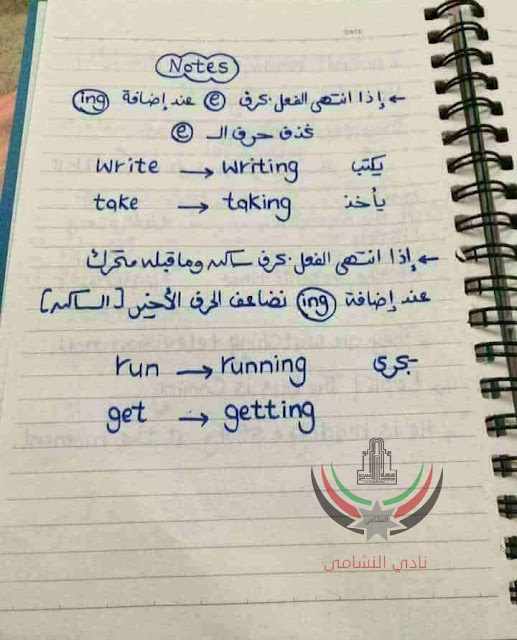 DATE
Notes
← إذا انتهى الفعل بحرف e عند إضافة ing
نحذف حرف الـ e
write → writing يكتب
take → taking يأخذ
← إذا انتهى الفعل بحرف ساكن وما قبله متحرك
عند إضافة ing نضاعف الحرف الأخير [الساكن]
run → running يجري
get → getting
النشامى
نادي النشامى